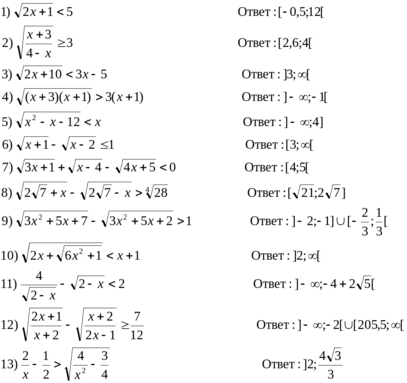 1) √(2x+1) < 5 Ответ : [− 0,5;12[
2) √((x+3)/(4−x)) ≥ 3 Ответ : [2,6;4[
3) √(2x+10) < 3x − 5 Ответ : ]3; ∞[
4) √((x+3)(x+1)) > 3(x+1) Ответ : ] − ∞;−1[
5) √(x² − x −12) < x Ответ : ] − ∞;4]
6) √(x+1) − √(x−2) ≤ 1 Ответ : [3; ∞[
7) √(3x+1) + √(x−4) − √(4x+5) < 0 Ответ : [4;5[
8) √(2√7 + x) − √(2√7 − x) > ⁴√28 Ответ : [√21;2√7]
9) √(3x² +5x+7) − √(3x² +5x+2) > 1 Ответ : ] − 2;−1] ∪ [− 2/3; 1/3[
10) √(2x + √(6x² +1)) < x + 1 Ответ : ]2; ∞[
11) 4/√(2−x) − √(2−x) < 2 Ответ : ] − ∞;− 4 + 2√5[
12) √((2x+1)/(x+2)) − √((x+2)/(2x−1)) ≥ 7/12 Ответ : ] − ∞;− 2[∪[205,5; ∞[
13) 2/x − 1/2 > √(4/x² − 3/4) Ответ : ]2; 4√3/3